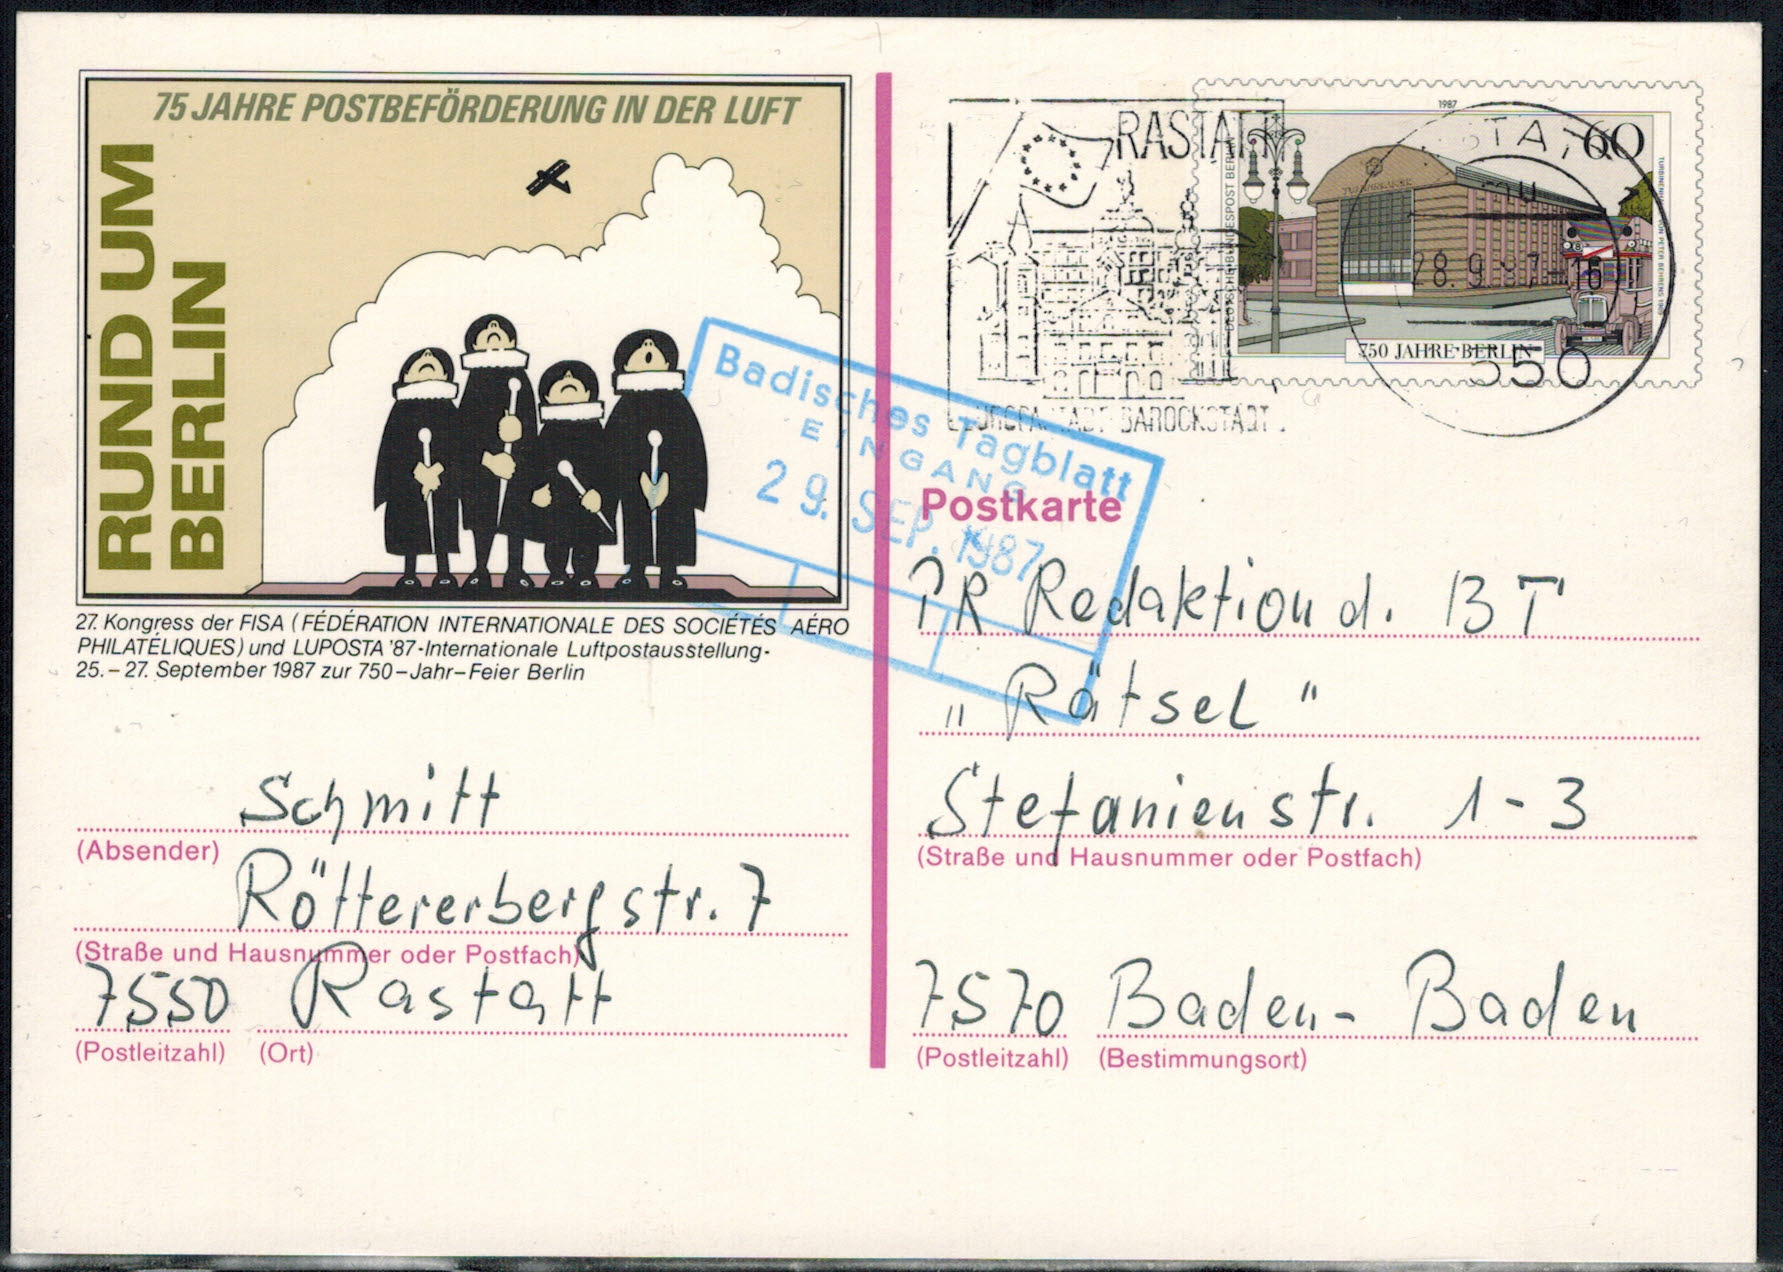 75 JAHRE POSTBEFÖRDERUNG IN DER LUFT
RUND UM
BERLIN
27. Kongress der FISA (FÉDÉRATION INTERNATIONALE DES SOCIÉTÉS AÉRO
PHILATÉLIQUES) und LUPOSTA '87-Internationale Luftpostausstellung-
25.–27. September 1987 zur 750–Jahr–Feier Berlin
Schmitt
(Absender)
Röttererbergstr. 7
(Straße und Hausnummer oder Postfach)
7550 Rastatt
(Postleitzahl) (Ort)
Badisches Tagblatt
EINGANG
29. SEP. 1987
RASTATT
EUROPASTADT BAROCKSTADT
28.9.87-18
550
1987
60
DEUTSCHE BUNDESPOST BERLIN
TURBINENHALLE VON PETER BEHRENS 1909
750 JAHRE BERLIN
Postkarte
PR Redaktion d. BT
"Rätsel"
Stefanienstr. 1-3
(Straße und Hausnummer oder Postfach)
7570 Baden-Baden
(Postleitzahl) (Bestimmungsort)